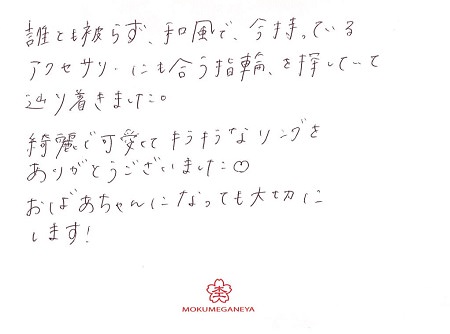 誰とも被らず、和風で、今持っている
アクセサリーにも合う指輪、を探していて
辿り着きました。
綺麗で可愛くて キラキラなリングを
ありがとうございました♡
おばあちゃんになっても大切に
します!
MOKUMEGANEYA